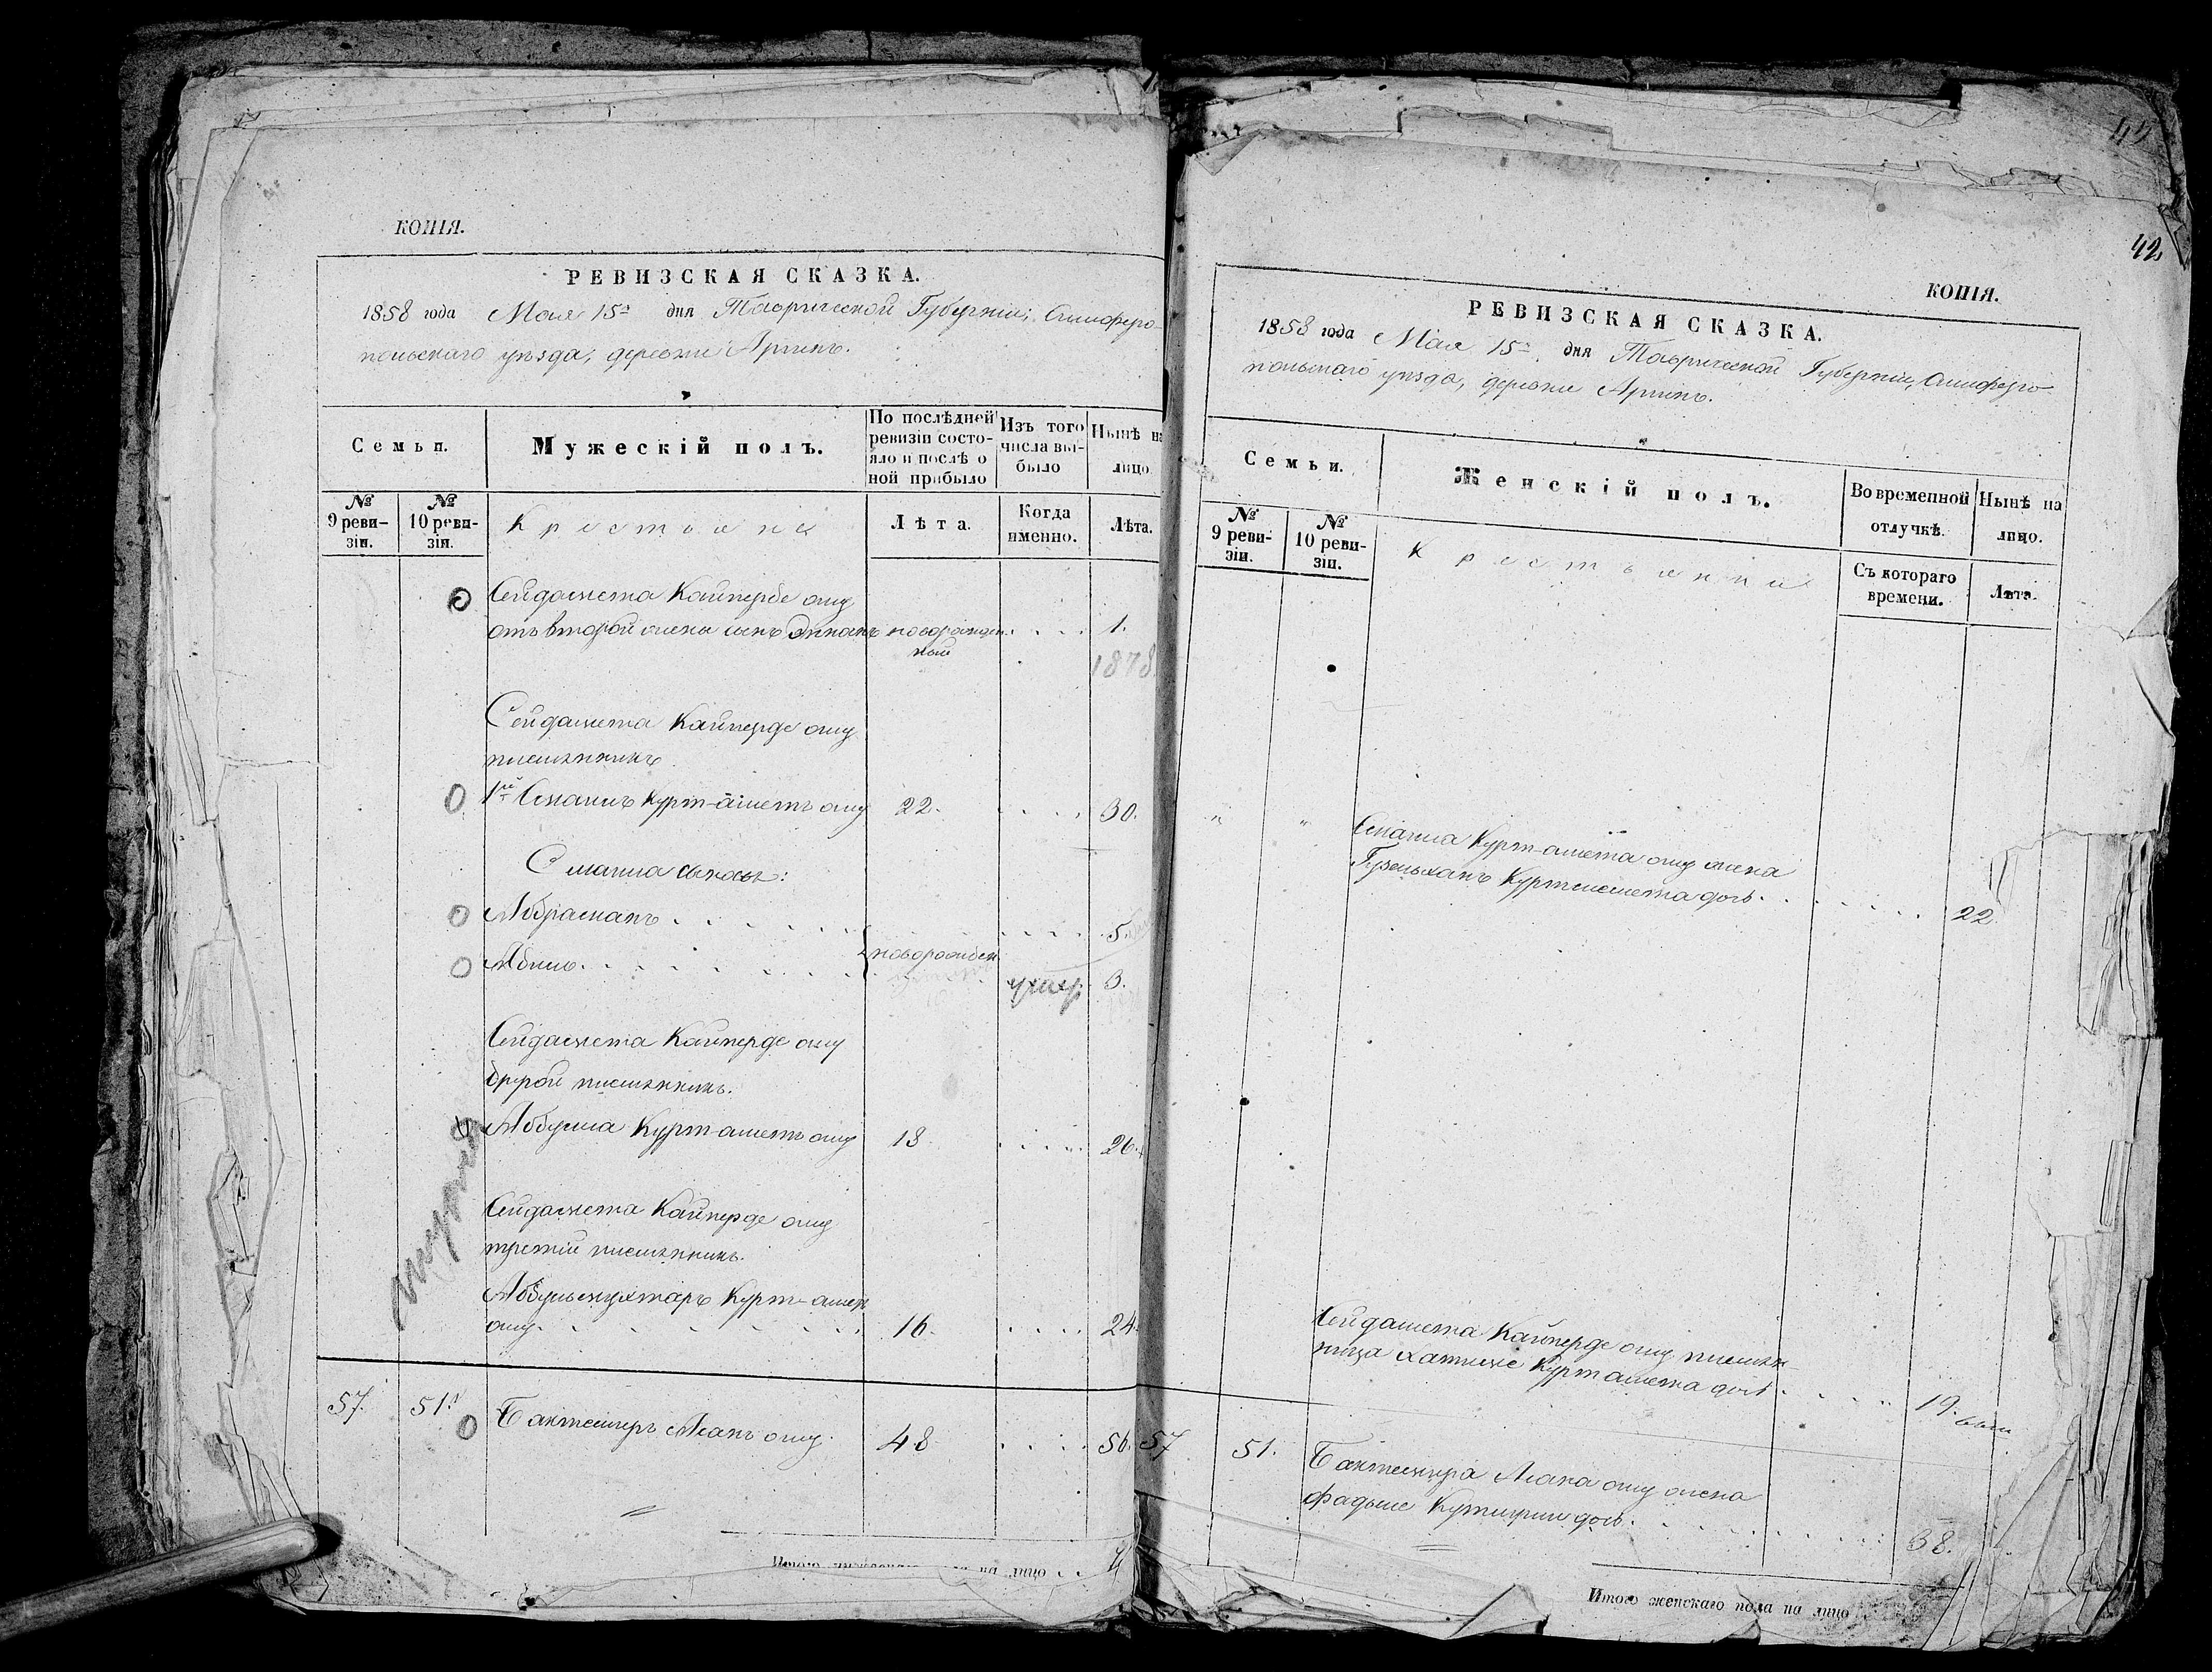 КОПІЯ.
РЕВИЗСКАЯ СКАЗКА.
1858 года Мая 15го дня Таврической Губерніи, Симферо-
польскаго уѣзда, деревни Аргинъ.
Семьи.
Мужескій полъ.
По послѣдней ревизіи состо-
яло и послѣ о
ной прибыло
Изъ того
числа вы-
было
Нынѣ на
лицо
№
9 реви-
зіи.
№
10 реви-
зіи.
Крестьяне
Лѣта.
Когда
именно.
Лѣта.
Сейдамета Кайперде оглу
отъ второй жены сынъ новорожден- 1.
ный
1878.
Сейдамета Кайперде оглу
племянникъ
1й Смаилъ Курт-аметъ оглу 22. 30.
Смаила сыновья:
Абраманъ 5.
Абиль новорожден умер 3.
Сейдамета Кайперде оглу
другой племянникъ.
Абдулла Курт-аметъ оглу 18 26.
Сейдамета Кайперде оглу
третій племянникъ.
Абдульмухтаръ Курт-амет
оглу 16. 24.
57. 51. Бактемиръ Асанъ оглу. 48 56.
Итого на лицо
42
КОПІЯ.
РЕВИЗСКАЯ СКАЗКА.
1858 года Мая 15го дня Таврической Губерніи, Симферо-
польскаго уѣзда, деревни Аргинъ.
Семьи.
Женскій полъ.
Во временной
отлучкѣ.
Нынѣ на
лицо.
№
9 реви-
зіи.
№
10 реви-
зіи.
Крестьянки
Съ котораго
времени.
Лѣта.
" " Смаила Курт-амета оглу жена
Гузельханъ Куртмемета дочь 22
Сейдамета Кайперде оглу племян-
ница Хатидже Курт амета дочь 19.
57 51. Бактемира Асана оглу жена
Фадьме дочь. 38.
Итого женскаго пола на лицо